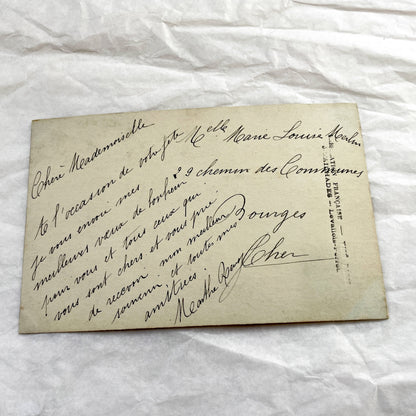 Chère Mademoiselle
A l'occasion de votre fête
je vous envoie mes
meilleurs vœux de bonheur
pour vous et tous ceux qui
vous sont chers et vous prie
de recevoir mon meilleur
souvenir et toutes mes
amitiées
Marthe
Melle Marie Louise
9 chemin des Communes
Bourges
Cher
FRANÇAISE